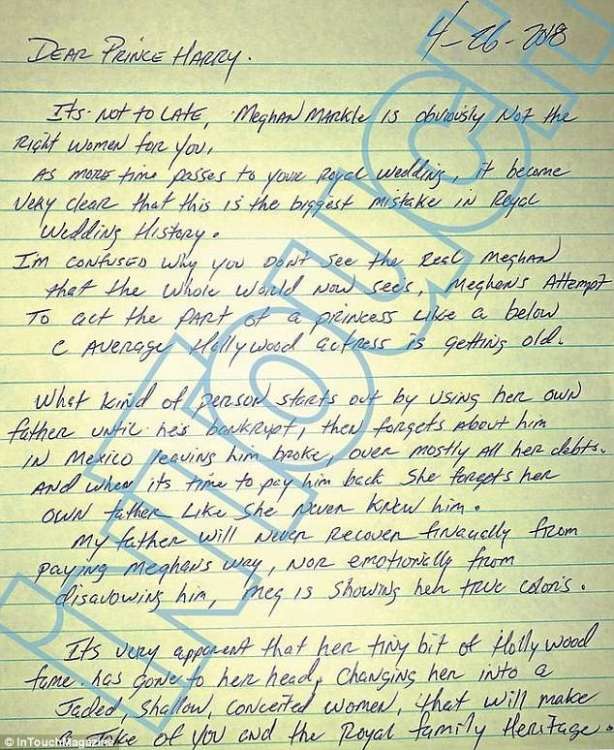 4-26-2018
Dear Prince Harry.
Its not to late, Meghan Markle is obviously Not the
Right women for you,
As more time passes to your Royal Wedding, it became
very clear that this is the biggest mistake in Royal
Wedding History.
I'm confused why you dont see the Real Meghan
that the whole world now sees, Meghan's Attempt
To act the part of a princess like a below
C Average Hollywood actress is getting old.
What kind of person starts out by using her own
father until he's bankrupt, then forgets about him
IN Mexico leaving him broke, over mostly all her debts.
And when its time to pay him back She forgets her
own father like she never knew him.
My father will never recover finacially from
paying Meghan's way, nor emotionally from
disavowing him, Meg is showing her true colors.
Its very apparent that her tiny bit of Hollywood
fame has gone to her head, Changing her into a
Jaded, Shallow, conceited women, that will make
A Joke of you and the Royal family Heritage.
InTouch
© InTouchMagazine